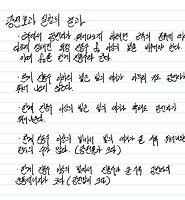 광전효과 실험의 결과
· 금속에서 광전자가 튀어나오게 하려면 금속의 종류에 따라
정해진 특정 진동수 이상의 빛을 비춰야 한다.
이때
· 한계 진동수 이하의 빛은 빛의 세기가 아무리 커도 광전자가
튀어 나오지 않는다.
· 한계 진동수 이상의 빛은 빛의 세기가 약해도 광전자가
튀어나온다.
· 한계 진동수 이상의 빛에서 빛의 세기가 클 수록 튀어나오는
전자의 수가 많다 (광전류가 크다)
· 한계 진동수 이상의 빛에서 진동수가 클 수록 광전자의
운동에너지가 크다